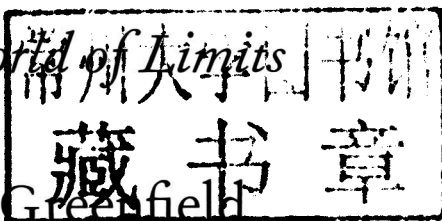 rld of Limits
常州大学图书馆
藏书章
Greenfield